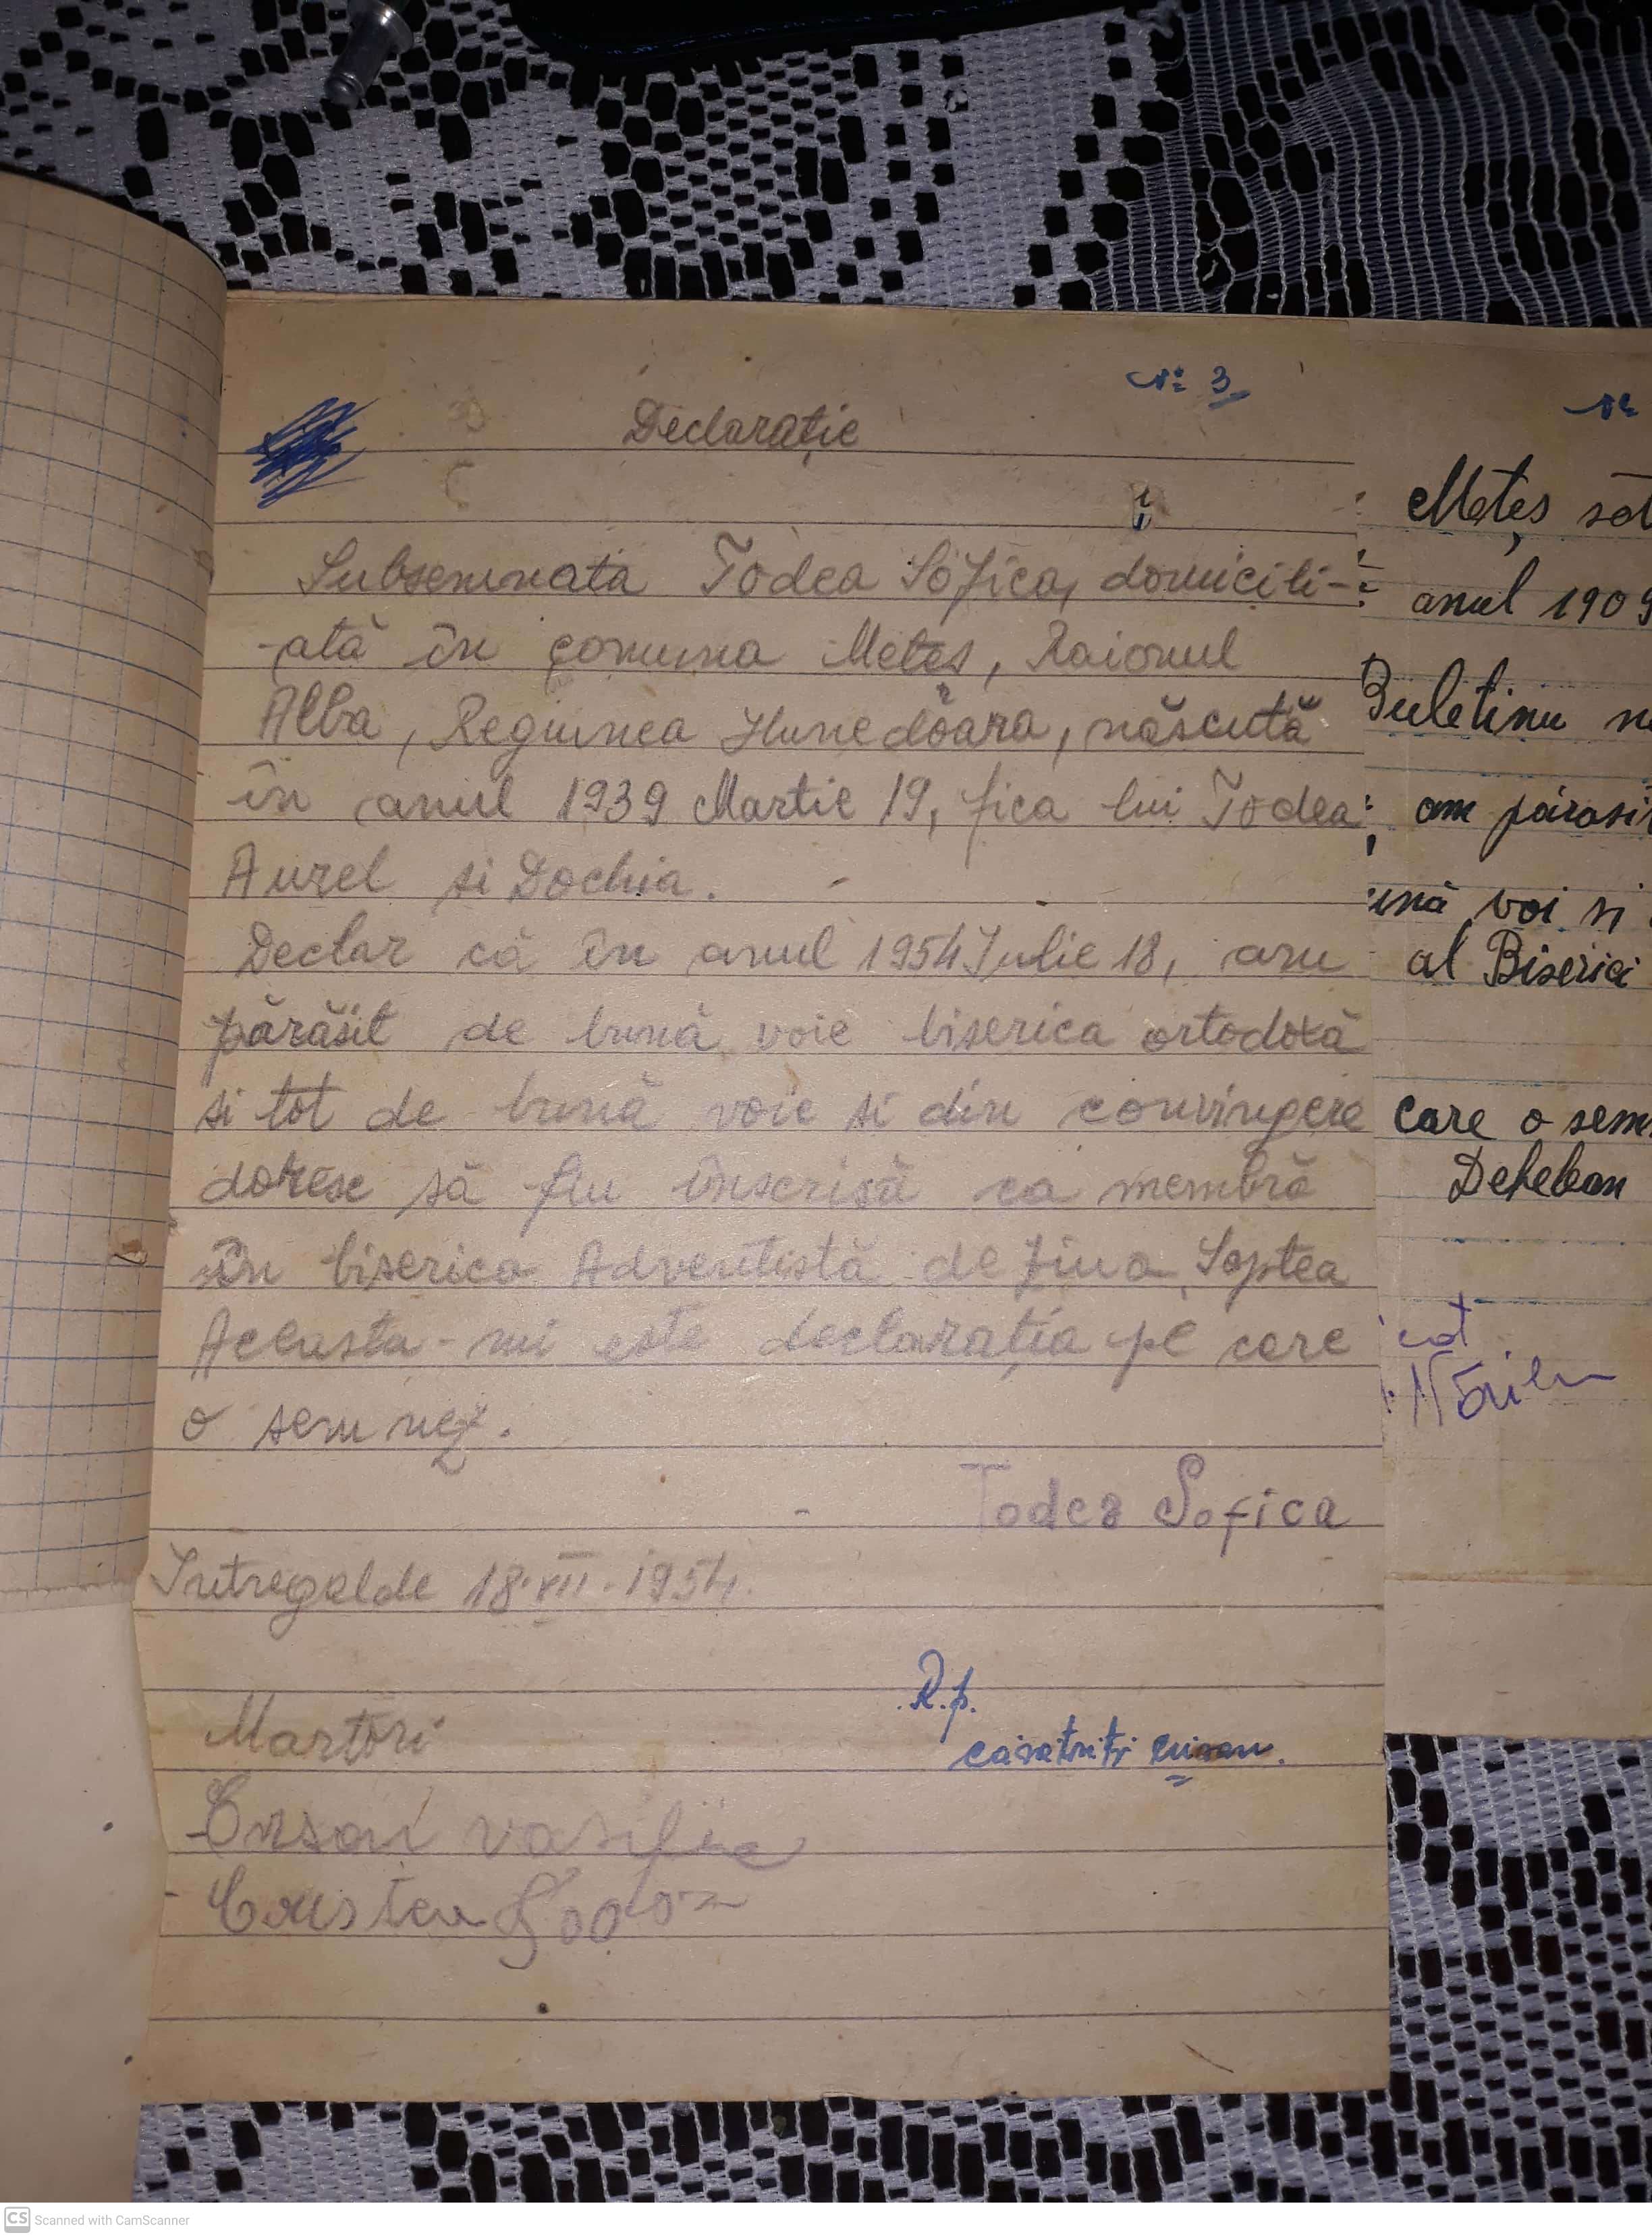 № 3
Declarație
Subsemnata Todea Sofica, domicili-
-ată în comuna Meteș, Raionul
Alba, Regiunea Hunedoara, născută
în anul 1939 Martie 19, fica lui Todea
Aurel si Dochia.
Declar că în anul 1954 Iulie 18, am
părăsit de bună voie biserica ortodoxă
si tot de bună voie si din convingere
doresc să fiu înscrisă ca membră
în biserica Adventistă de Ziua Șaptea
Aceasta-mi este declarația pe care
o semnez.
Todea Sofica
Intregalde 18.VII.1954.
R.p.
Martori
căsătorită
vasilie
Cristea
№
Meteș sat
anul 1909
Buletinu
am părăsit
ună voi si
al Biserici
care o sem
Dehelean